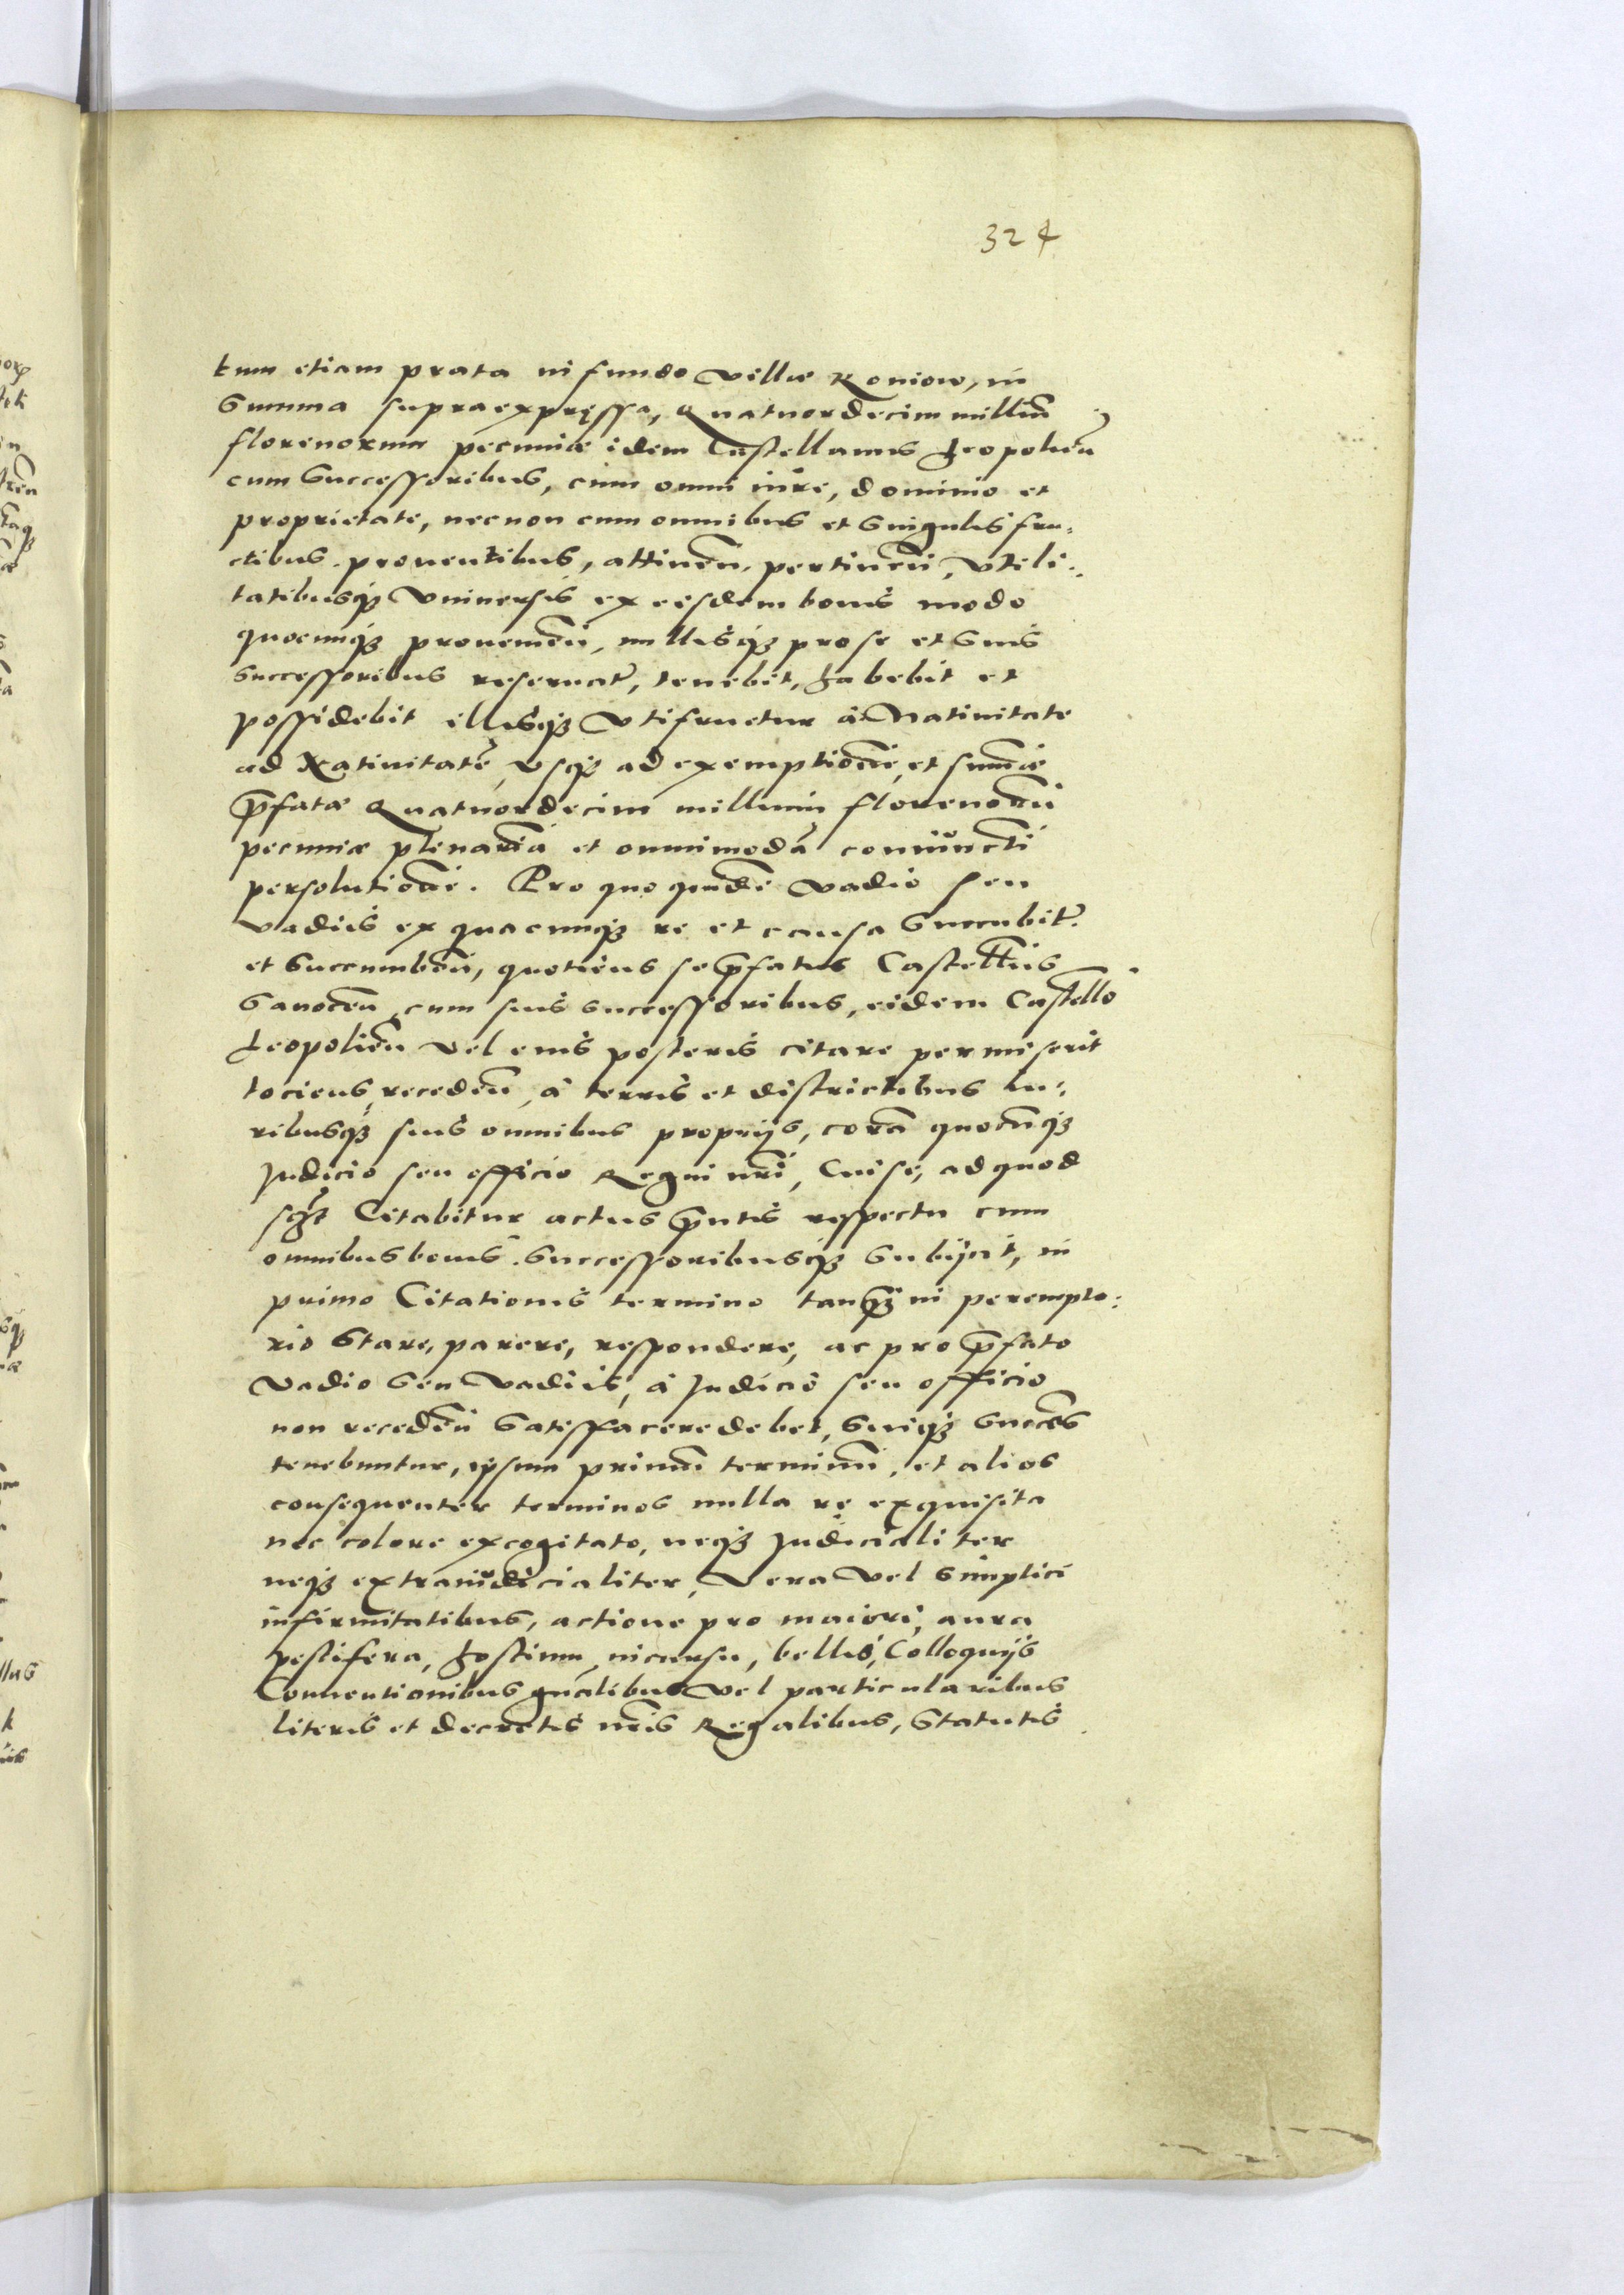 324
tum etiam prata in fundo villæ Koniow, in
Summa supraexpressa, Quatuordecim milliũ
florenorum pecuniæ idem Castellanus Leopolieñ
cum Successoribus, cum omni iure, dominio et
proprietate, necnon cum omnibus et singulis fru-
ctibus. prouentibus, attineñ. pertineñ, vtili-
tatibusq₃ Vniuersis ex eisdem bonis modo
quocunq₃ prouenieñ, nullisq₃ pro se et suis
successoribus reseruat̃, tenebit, habebit et
possidebit illisq₃ Vtifruetur à Natiuitate
ad Natiuitatẽ, vsq₃ ad exemptionẽ, et summæ
p̃fatæ Quatuordecim millium florenorũ
pecuniæ plenariã et omnimodã coniũcti
persolutionẽ. Pro quo quidẽ vadio seu
vadiis ex quacunq₃ re et causa succubit̃.
et succumbeñ, quotiens se p̃fatus Castellñus
Sanoceñ, cum suis successoribus, eidem Castello
Leopolieñ vel eius posteris citare permiserit
tociens, recedeñ, à terris et districtibus Iu-
ribusq₃ suis omnibus proprijs, corã quocũq₃
Judicio seu officio Regni nr̃i, Cui se, ad quod
Citabitur actus p̃ntis respectu cum
omnibus bonis. Successoribusq₃ Subijcit, in
primo Citationis termino tanq₃ in perempto-
rio Stare, parere, respondere, ac pro p̃fato
Vadio seu Vadiis, à Judicio seu officio
non recedeñ Satisffacere debet, suiq₃ succes̃
tenebuntur, ipsum primũ terminũ, et alios
consequenter terminos nulla re exquisita
nec colore excogitato, neq₃ Judicialiter
neq₃ extraiudicialiter, Vera Vel Simplici
infirmitatibus, actione pro maiori, aura
pestifera, hostium, incursu, bellis, Colloquijs
Conuentionibus gñalibus Vel particularibus
literis et decretis nr̃is Regalibus, Statutis